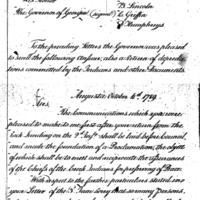 B. Lincoln
The Governor of Georgia (signed) C. Griffin
D. Humphreys
To the preceding Letters the Governor was pleased
to send the following Answer, also a Return of depreda-
tions committed by the Indians and other Documents.
Augusta October 4th 1789.
Sirs,
The Communications which you were
pleased to make me just after your return from the
Rock Landing on the 2d Inst. shall be laid before Council,
and made the foundation of a Proclamation, the object
of which shall be to meet and reciprocate the assurances
of the Chiefs of the Creek Indians for preserving of Peace.
With respect to the further particulars stated in
your Letter of the 3d I am sorry that so many persons,